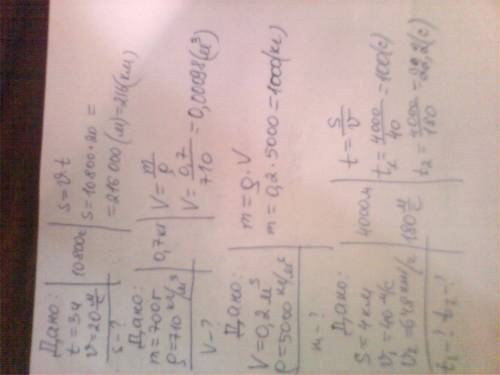 Дано:
t = 3ч
v = 20 м/с
s - ?
10800с
s = v · t
s = 10800 · 20 =
= 216000 (м) = 216 (км)
Дано:
m = 700г
ρ = 710 кг/м³
V - ?
0,7кг
V = m/ρ
V = 0,7/710 = 0,00098 (м³)
Дано:
V = 0,2 м³
ρ = 5000 кг/м³
m - ?
m = ρ · V
m = 0,2 · 5000 = 1000 (кг)
Дано:
S = 4 км
v₁ = 40 м/с
v₂ = 648 км/ч
t₁ - ? t₂ - ?
4000м
180 м/с
t = S/v
t₁ = 4000/40 = 100 (с)
t₂ = 4000/180 = 22,2 (с)